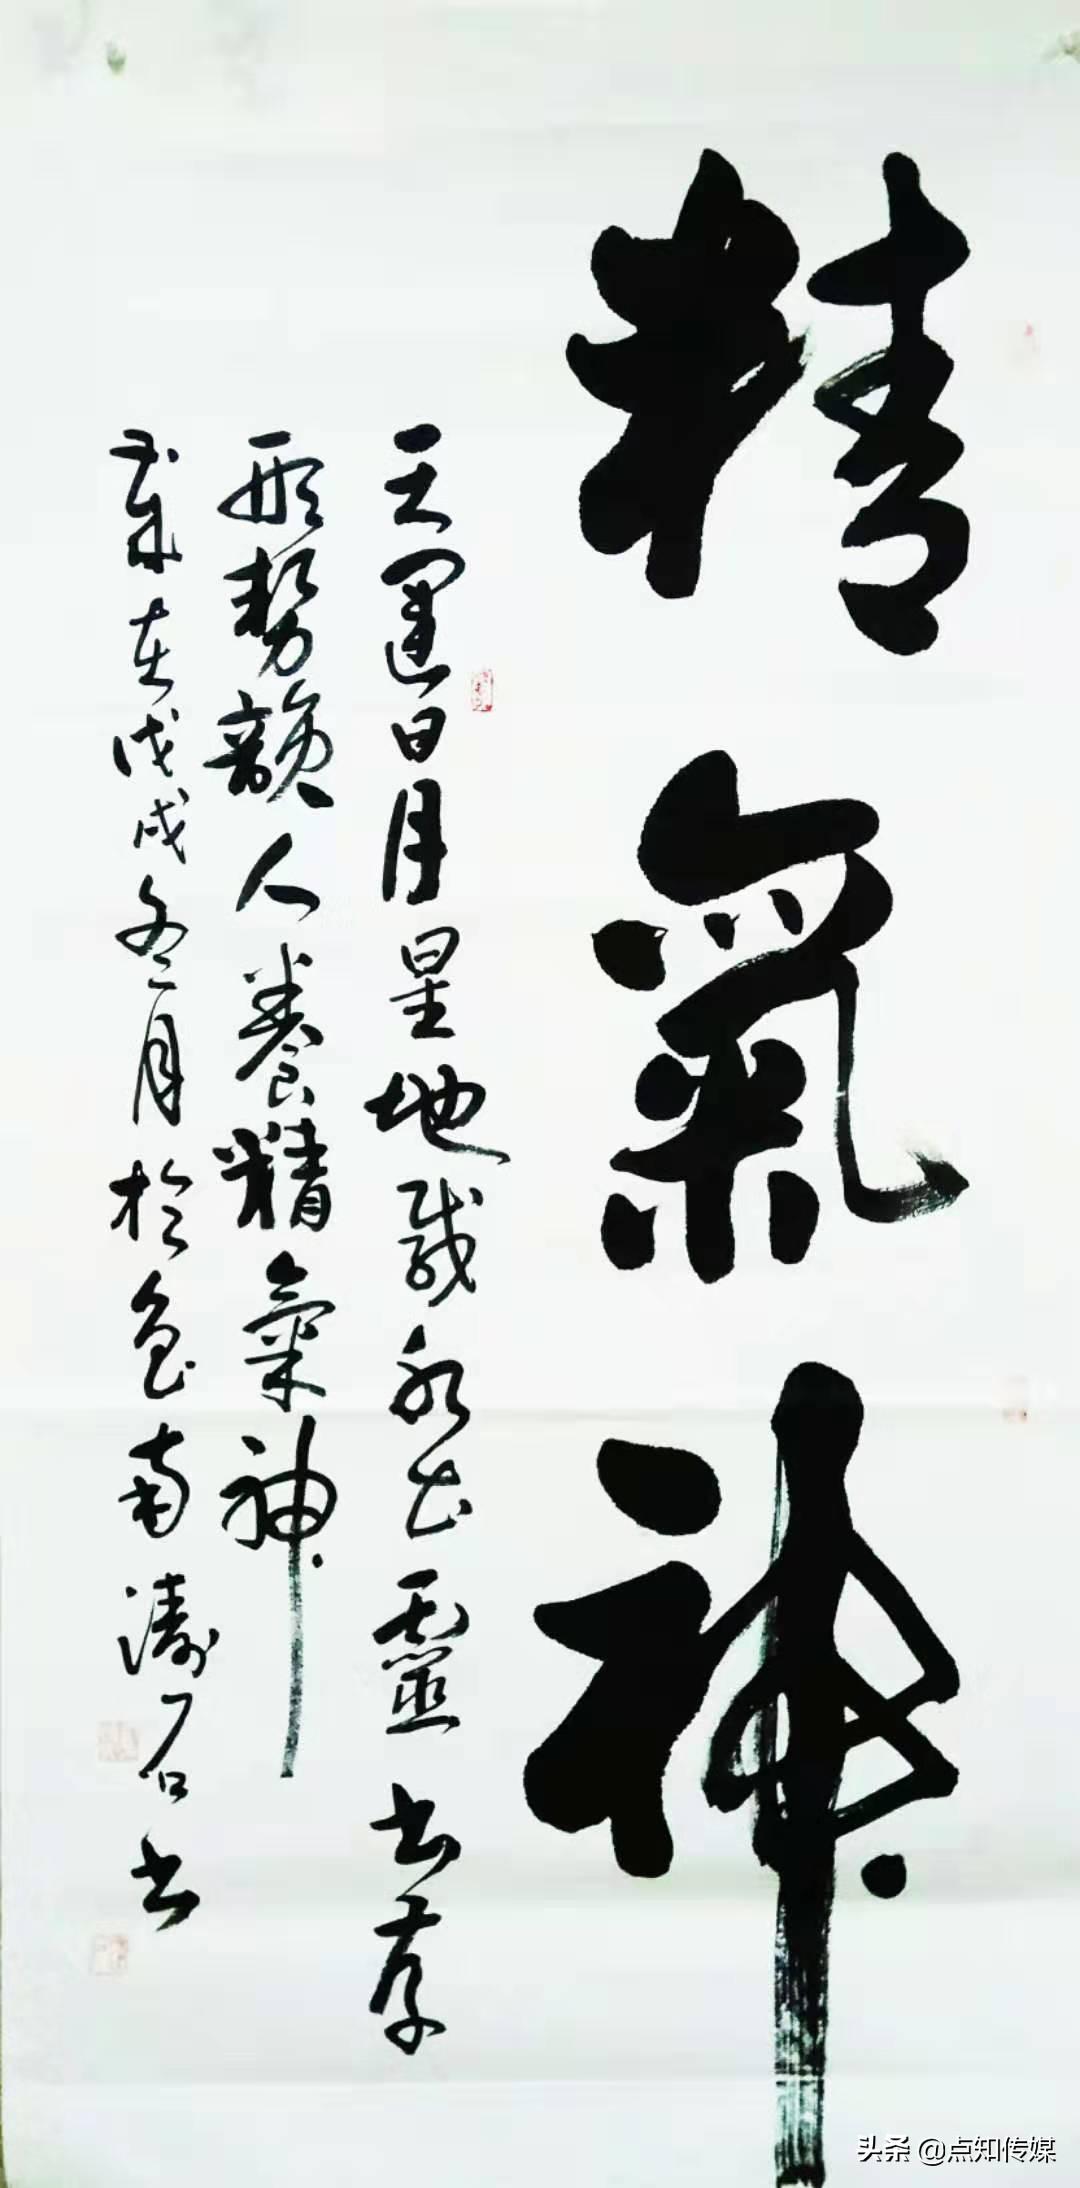 精氣神
天運日月星地載水土靈書存
形勢韻人養精氣神
歲在戊戌冬月於魯南濤石書
头条 @点知传媒